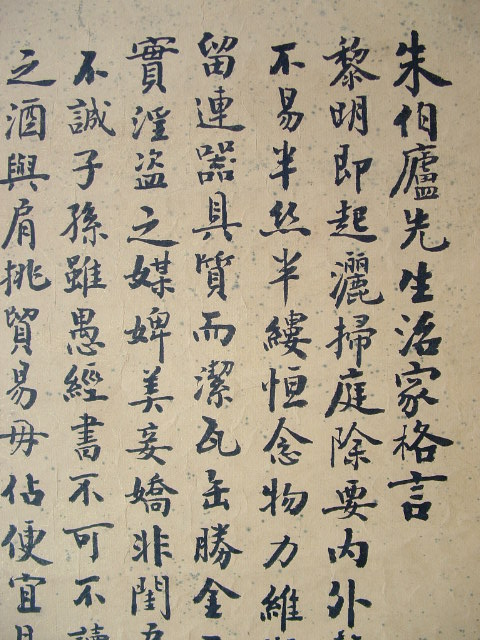 朱伯廬先生治家格言
黎明即起灑掃庭除要內外
不易半絲半縷恒念物力維
留連器具質而潔瓦缶勝金
實淫盜之媒婢美妾嬌非閨
不誠子孫雖愚經書不可不讀
之酒與肩挑貿易毋佔便宜見